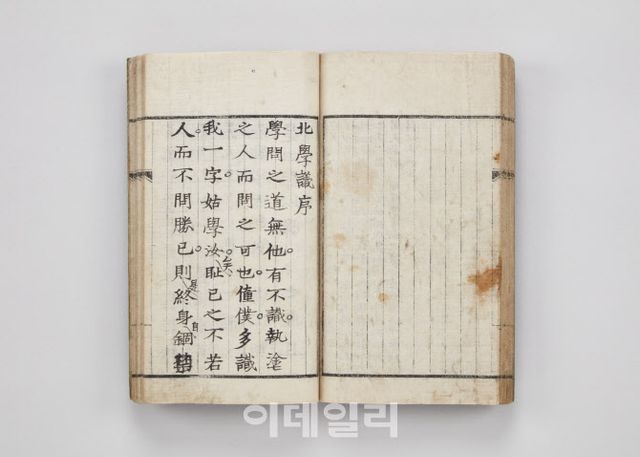 北學議序
學問之道無他。有不識。執塗
之人而問之可也。僮僕多識
我一字。姑學汝。恥己之不若
人而不問勝己。則是終身自錮
이데일리